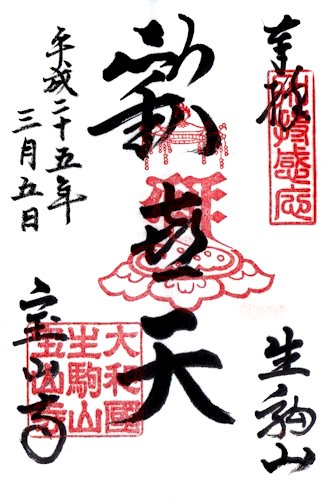 奉拝
生駒山
歓喜天
平成二十五年
三月五日
宝山寺
大和國
生駒山
宝山寺